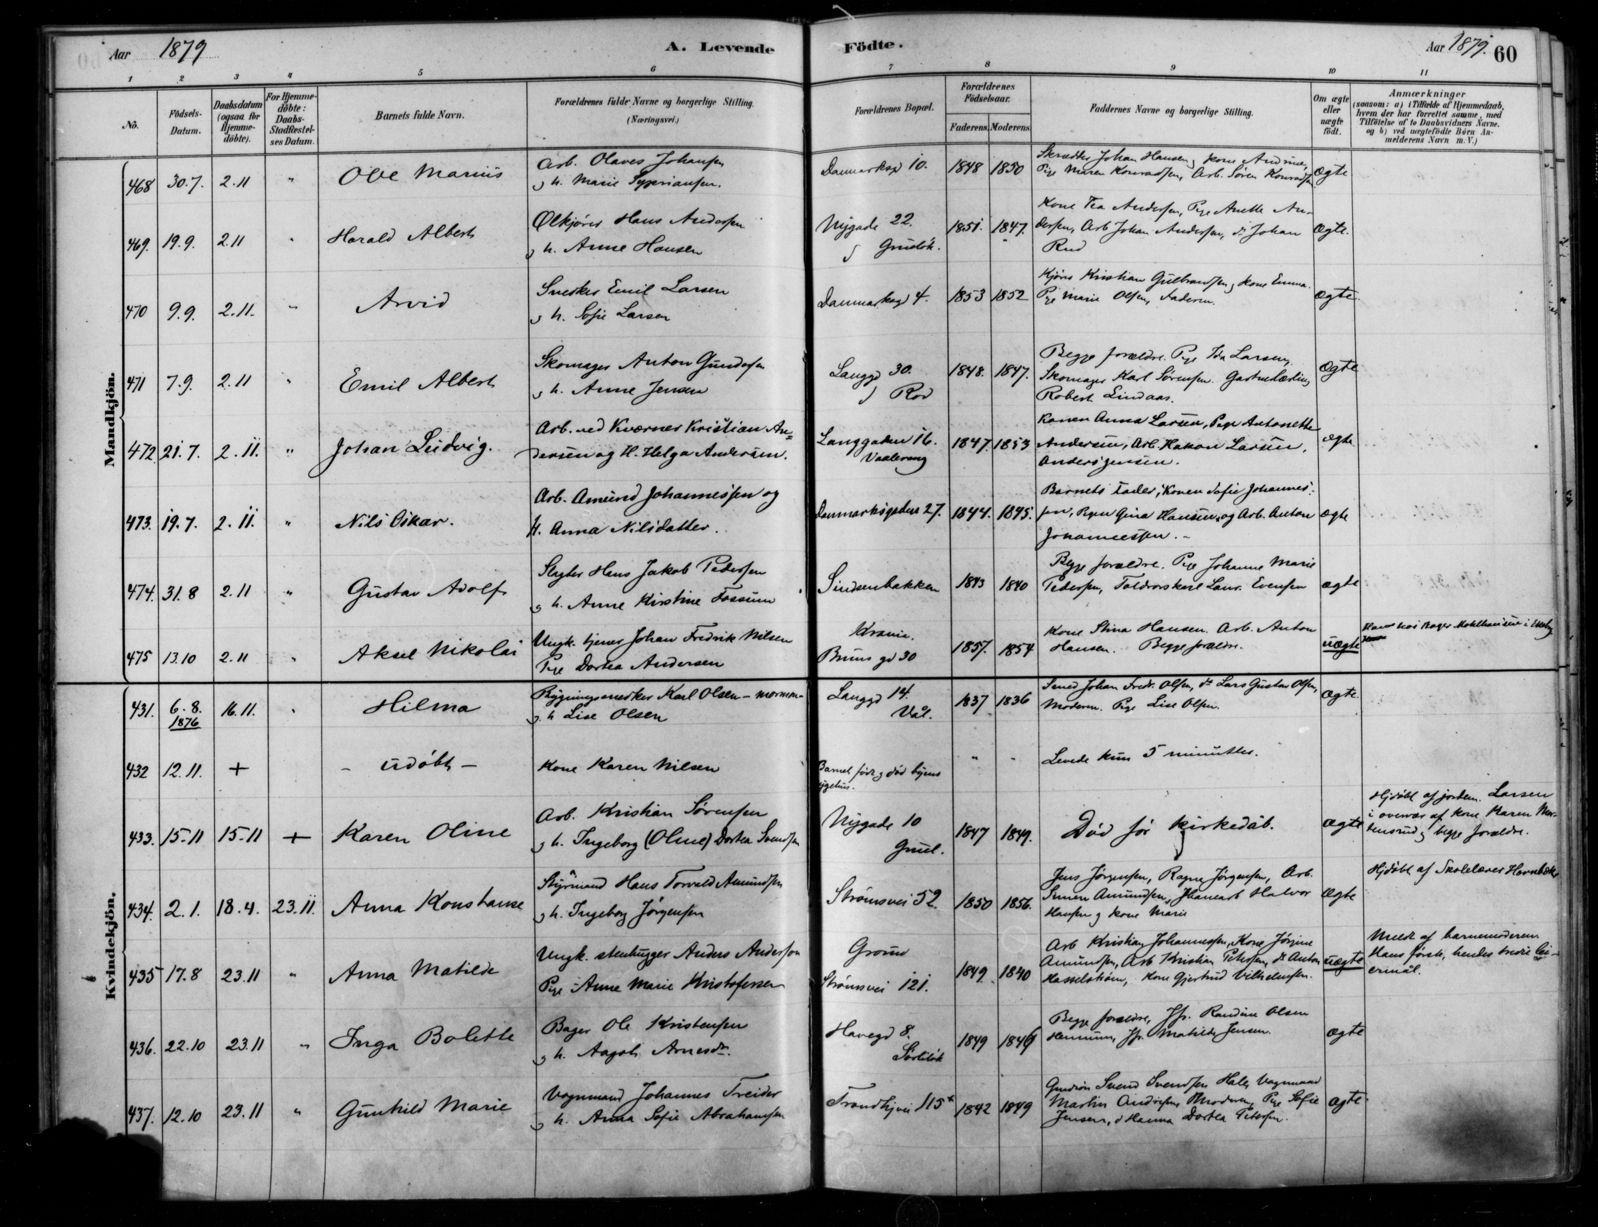 Aar 1879 A. Levende Födte. Aar 1879. 60
1 2 3 4 5 6 7 8 9 10 11
No. Födsels-Datum. Daabsdatum (ogsaa for Hjemme-döbte). For Hjemme-döbte: Daabs-Stadfæstel-ses Datum. Barnets fulde Navn. Forældrenes fulde Navne og borgerlige Stilling. (Næringsvei.) Forældrenes Bopæl. Forældrenes Födselsaar. Faderens. Moderens. Faddernes Navne og borgerlige Stilling. Om ægte eller uægte födt. Anmærkninger
(saasom: a) i Tilfælde af Hjemmedaab, hvem der har forrettet samme, med Tilföielse af to Daabsvidners Navne, og b) ved uægtefödte Börn An-melderens Navn m.V.)
Mandkjön.
468 30.7. 2.11 " Ole Marius Arb. Olaves Johansen
og h. Marie Sypriansen. Danmarksgd 10. 1848 1850 Skrædder Johan Hansen, kone Andrine,
Pige Maren Konradsen, Arb. Søren Konradsen ægte
469. 19.9. 2.11 " Harald Albert Ølkjører Hans Andersen
og h. Anne Hansen Nygade 22.
Grønl.k. 1851. 1847. Kone Tea Andersen, Pige Anette An-
dersen, Arb Johan Andersen, do Johan
Rud ægte.
470 9.9. 2.11. " Arvid Snedker Emil Larsen
og h. Sofie Larsen Danmarksgd 4. 1853 1852 Kjører Kristian Gulbrandsen, kone Emma.
Pige Marie Olsen, Faderen. ægte
471 7.9. 2.11 " Emil Albert Skomager Anton Gundersen
og h. Anne Jensen Langgd 30. 1848. 1847. Begge forældre. Pige Ida Larsen,
Skomager Karl Sørensen.
Robert Lindaas. ægte
472 21.7. 2.11. " Johan Ludvig. Arb. ved Kværner Kristian An-
dersen og H. Helga Andersen. Langgaden 16.
Vaalereng 1847. 1853 Konen Anna Larsen, Pige Antonette
Andersen, Arb. Hakon Larsen,
Anders Jensen. ægte
473. 19.7. 2.11. " Nils Oskar. Arb. Amund Johannessen og
H. Anna Nilsdatter. Danmarksgaden 27. 1844. 1845. Barnets Fader, Konen Sofie Johannes-
sen, Pigen Gina Hansen, og Arb. Anton
Johannessen. - ægte
474. 31.8 2.11 " Gustav Adolf Slagter Hans Jakob Pedersen
og h. Anne Kirstine Fossum Sindsenbakken 1843 1840 Begge forældre. Pige Johanne Marie
Pedersen, Toldvorskarl Laur. Evensen ægte
475 13.10 2.11 " Aksel Nikolai Ungk. tjener Johan Fredrik Nilsen
Pige Dortea Andersen Krania.
Bruns gd 30 1857. 1854 Kone Stina Hansen. Arb. Anton
Hansen. Begge forældre. uægte
Kvindekjön.
431. 6.8.
1876 16.11. " Hilma Bygningssnedker Karl Olsen -
og h Lise Olsen Langgd 14.
Vål. 1837 1836 Smed Johan Fredr. Olsen, do Lars Gustav Olsen,
Moderen. Pige Lise Olsen. ægte
432 12.11. + - udøbt - Kone Karen Nilsen Barnet født og død byens
sygehus. " " Levede kun 5 minutter.
433. 15-11 15-11 + Karen Oline Arb. Kristian Sørensen
og h. Ingeborg (Oline) Dortea Svendsen Nygade 10
Grønl. 1847 1849. Død før kirkedåb. ægte Hjdøbt af jordem. Larsen
i overvær af kone Karen Mor-
tensrud og begge forældre.
434. 2.1. 18.4. 23.11. Anna Konstanse Styrmand Hans Torvald Amundsen
og h. Ingeborg Jørgensen Strømsvei 52 1850 1856. Jens Jørgensen, Ragne Jørgensen, Arb.
Simen Amundsen, Halvor
Hansen og kone Marie ægte Hjdøbt af Skolelærer
435 17.8 23.11 " Anna Matilde Ungk. stenhugger Anders Anderson
Pige Anne Marie Kristofersen Grorud
Strømsvei 121. 1849. 1840 Arb Kristian Johannessen, Kone Jørgine
Amundsen, Arb Kristian Petersen, do Anton
Hasselstrøm, Kone Gjertrud Vilhelmsen. uægte Meldt af barnemoderen
Hans første, hendes tredie Lei-
ermål.
436. 22.10 23.11 " Inga Bolette Bager Ole Kristensen
og h. Aagot Arnesdr. Havegd 8. 1849 1849 Begge forældre, Jfr. Randine Olsen
Jfr. Matilde Jensen. ægte
437. 12.10 23.11 " Gunhild Marie Vognmand Johannes Treider
og h. Anna Sofie Abrahamsen Trondhjvei 115 1842 1849 Svend Svendsen Vognmand
Martin Andersen, Moderen, Pige Sofie
Jensen, d Hanna Dortea Petersen. ægte